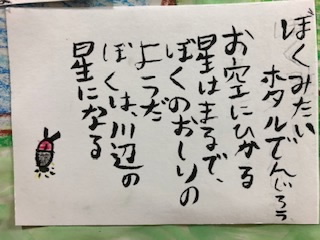 ぼくみたい
ホタルでんじろう
お空にひかる
星はまるで、
ぼくのおしりの
ようだ
ぼくは、川辺の
星になる